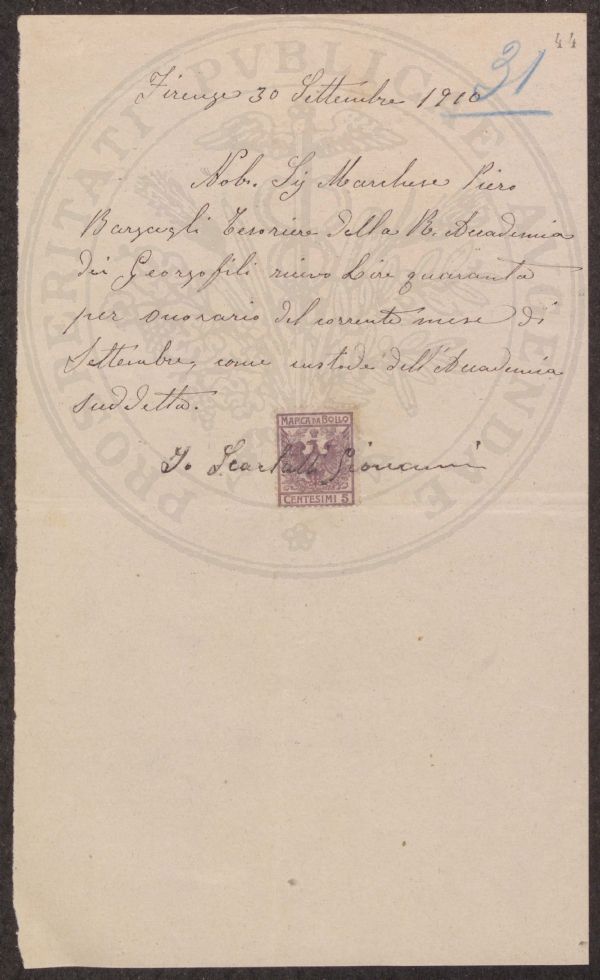 44
31
Firenze 30 Settembre 1910
Nob. Sig Marchese Piero
Bargagli Tesoriere della R. Accademia
dei Georgofili ricevo Lire quaranta
per onorario del corrente mese di
Settembre, come custode dell'Accademia
suddetta.
MARCA DA BOLLO
Io Scarlatti Giovanni
CENTESIMI 5
PROSPERITATI PVBLICAE AVGENDAE